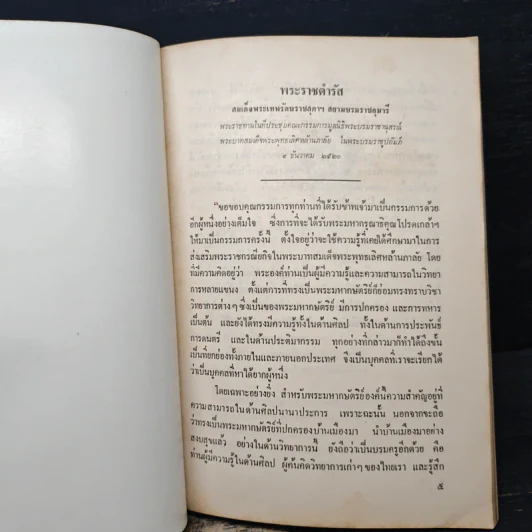 พระราชดำรัส
สมเด็จพระเทพรัตนราชสุดาฯ สยามบรมราชกุมารี
พระราชทานในที่ประชุมคณะกรรมการมูลนิธิพระบรมราชานุสรณ์
พระบาทสมเด็จพระพุทธเลิศหล้านภาลัย ในพระบรมราชูปถัมภ์
๙ ธันวาคม ๒๕๒๐
"ขอขอบคุณกรรมการทุกท่านที่ได้รับข้าพเจ้ามาเป็นกรรมการด้วย
อีกผู้หนึ่งอย่างเต็มใจ ซึ่งการที่จะได้รับพระมหากรุณาธิคุณโปรดเกล้าฯ
ให้มาเป็นกรรมการครั้งนี้ ตั้งใจอยู่ว่าจะใช้ความรู้ที่เคยได้ศึกษามาในการ
ส่งเสริมพระราชกรณียกิจในพระบาทสมเด็จพระพุทธเลิศหล้านภาลัย โดย
ที่มีความคิดอยู่ว่า พระองค์ท่านเป็นผู้มีความรู้และความสามารถในวิทยา
การหลายแขนง ตั้งแต่การที่ทรงเป็นพระมหากษัตริย์ก็ย่อมทรงทราบวิชา
วิทยาการต่าง ๆ ซึ่งเป็นของพระมหากษัตริย์ มีการปกครอง และการทหาร
เป็นต้น และยังได้ทรงมีความรู้ทั้งในด้านศิลป ทั้งในด้านการประพันธ์
การดนตรี และในด้านประติมากรรม ทุกอย่างที่กล่าวมาก็ทำได้ถึงขั้น
เป็นที่ยกย่องทั้งภายในและภายนอกประเทศ จึงเป็นบุคคลที่เราจะเรียกได้
ว่าเป็นบุคคลที่หาได้ยากผู้หนึ่ง
โดยเฉพาะอย่างยิ่ง สำหรับพระมหากษัตริย์องค์นี้ความสำคัญอยู่ที่
ความสามารถในด้านศิลปนานาประการ เพราะฉะนั้น นอกจากจะถือ
ว่าทรงเป็นพระมหากษัตริย์ที่ปกครองบ้านเมืองมา นำบ้านเมืองมาอย่าง
สงบสุขแล้ว อย่างในด้านวิทยาการนี้ ยังถือว่าเป็นบรมครูอีกด้วย คือ
ท่านผู้มีความรู้ในด้านศิลป ผู้ค้นคิดวิทยาการเก่าๆ ของไทยเรา และรู้สึก
๕